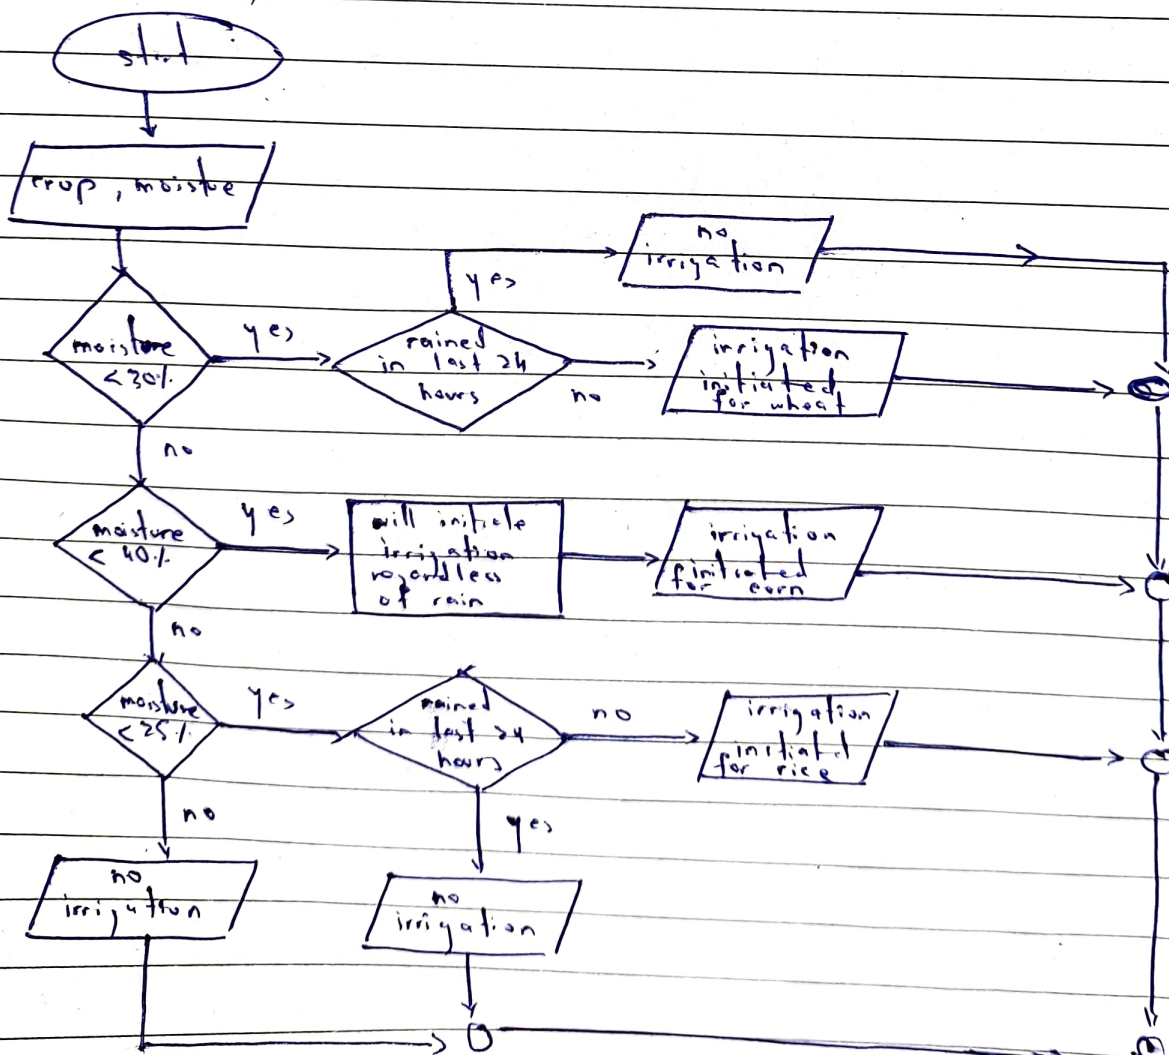 start
crop, moistue
no
irrigation
yes
moisture
<30%
yes
rained
in last 24
hours
no
irrigation
initiated
for wheat
no
moisture
< 40%
yes
will initiate
irrigation
regardless
of rain
irrigation
initiated
for corn
no
moisture
<25%
yes
rained
in last 24
hours
no
irrigation
initiated
for rice
no
yes
no
irrigation
no
irrigation